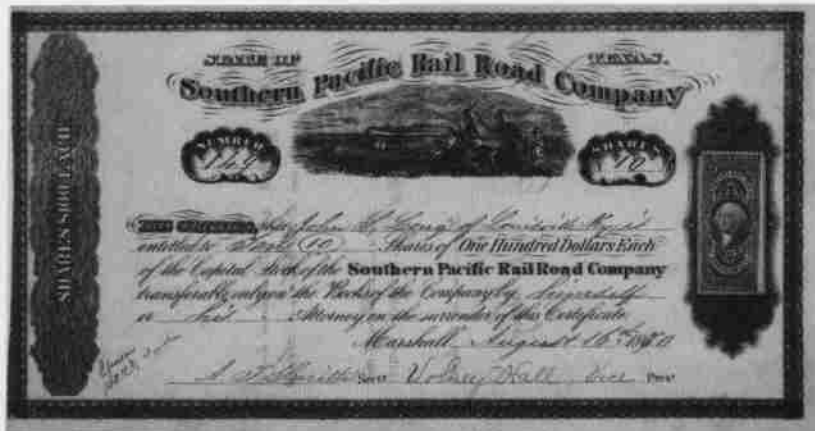 STATE OF TEXAS.
Southern Pacific Rail Road Company
NUMBER 149 SHARES 10
SHARES $100 EACH
John of
entitled to (10) Shares of One Hundred Dollars Each
of the Capital Stock of the Southern Pacific Rail Road Company
transferable only on the Books of the Company by himself
or his Attorney on the surrender of this Certificate
Marshall August 16th
Secy Volney Hall Vice Prest